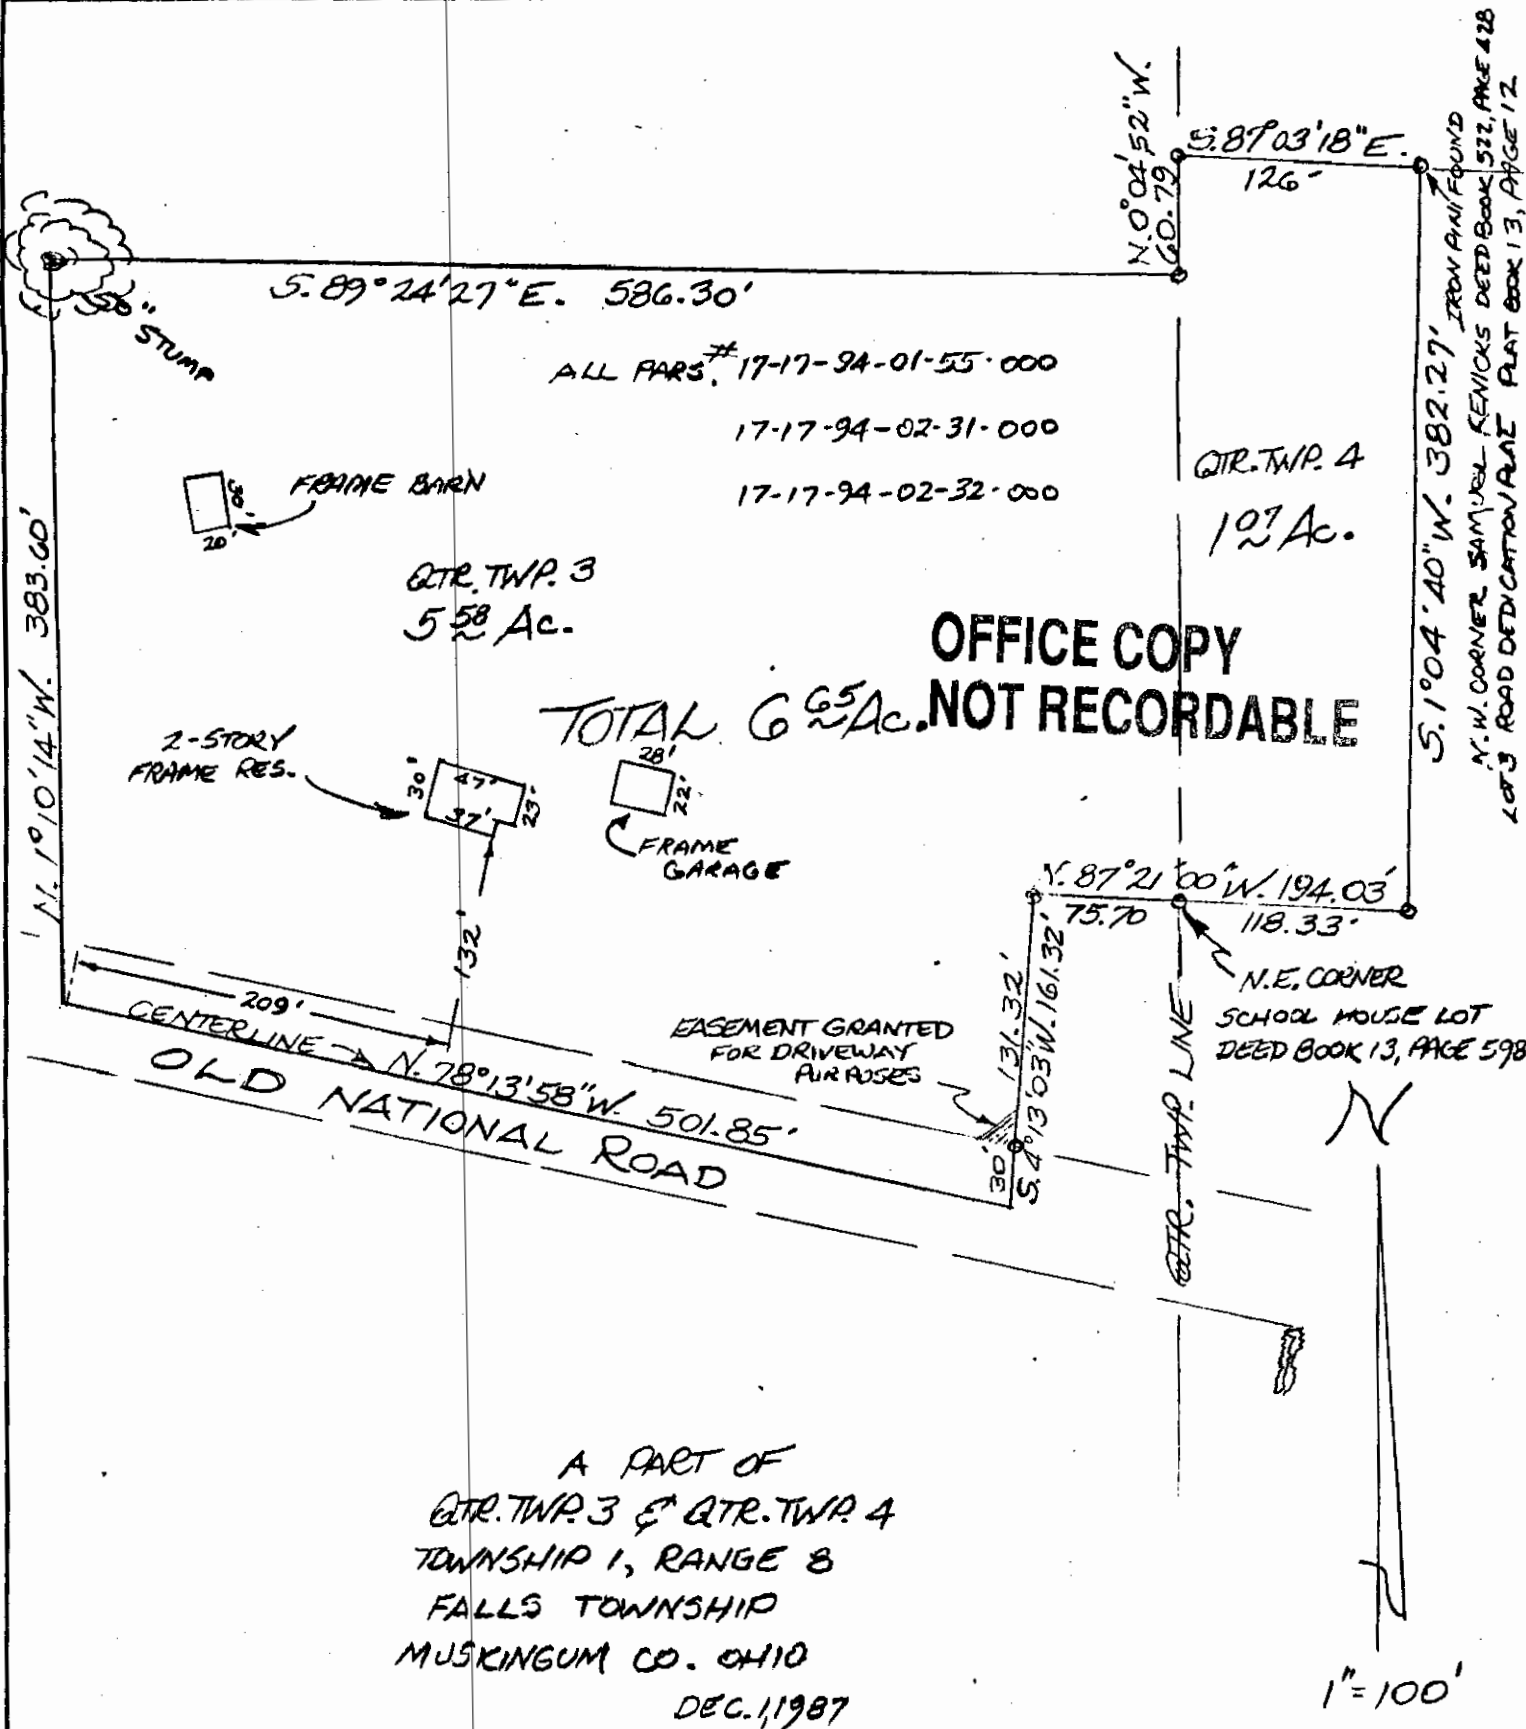 N. 0°04'52" W.
60.79
S. 87°03'18" E.
126-
IRON PIN FOUND
N.W. CORNER SAMUEL KENICKS DEED BOOK 522, PAGE 428
LOT 3 ROAD DEDICATION PLAT PLAT BOOK 13, PAGE 12
S. 89°24'27" E. 586.30'
STUMP
ALL PARS. # 17-17-94-01-55-000
17-17-94-02-31-000
17-17-94-02-32-000
QTR. TWP. 4
1 07 Ac.
S. 1°04'40" W. 382.27'
FRAME BARN
30'
20'
N. 1°10'14" W. 383.60'
QTR. TWP. 3
5 58 Ac.
OFFICE COPY
NOT RECORDABLE
TOTAL 6 65 Ac.
2-STORY
FRAME RES.
30'
47'
37'
23'
28'
22'
FRAME
GARAGE
N. 87°21'00" W. 194.03'
75.70
118.33'
132'
N.E. CORNER
SCHOOL HOUSE LOT
DEED BOOK 13, PAGE 598
209'
CENTERLINE
N. 78°13'58" W. 501.85'
OLD NATIONAL ROAD
EASEMENT GRANTED
FOR DRIVEWAY
PURPOSES
131.32'
S. 4°13'03" W. 161.32'
30'
QTR. TWP. LINE
N
A PART OF
QTR. TWP. 3 & QTR. TWP. 4
TOWNSHIP 1, RANGE 8
FALLS TOWNSHIP
MUSKINGUM CO. OHIO
DEC. 1, 1987
1" = 100'